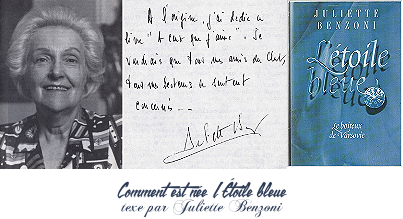 A l'origine, j'ai dédié ce
livre "A ceux que j'aime". Je
voudrais que tous mes amis du Club,
tous mes lecteurs se sentent
concernés...
Juliette Benzoni
JULIETTE
BENZONI
L'étoile
bleue
Le boiteux
de Varsovie
Comment est née l'Étoile bleue
texe par Juliette Benzoni